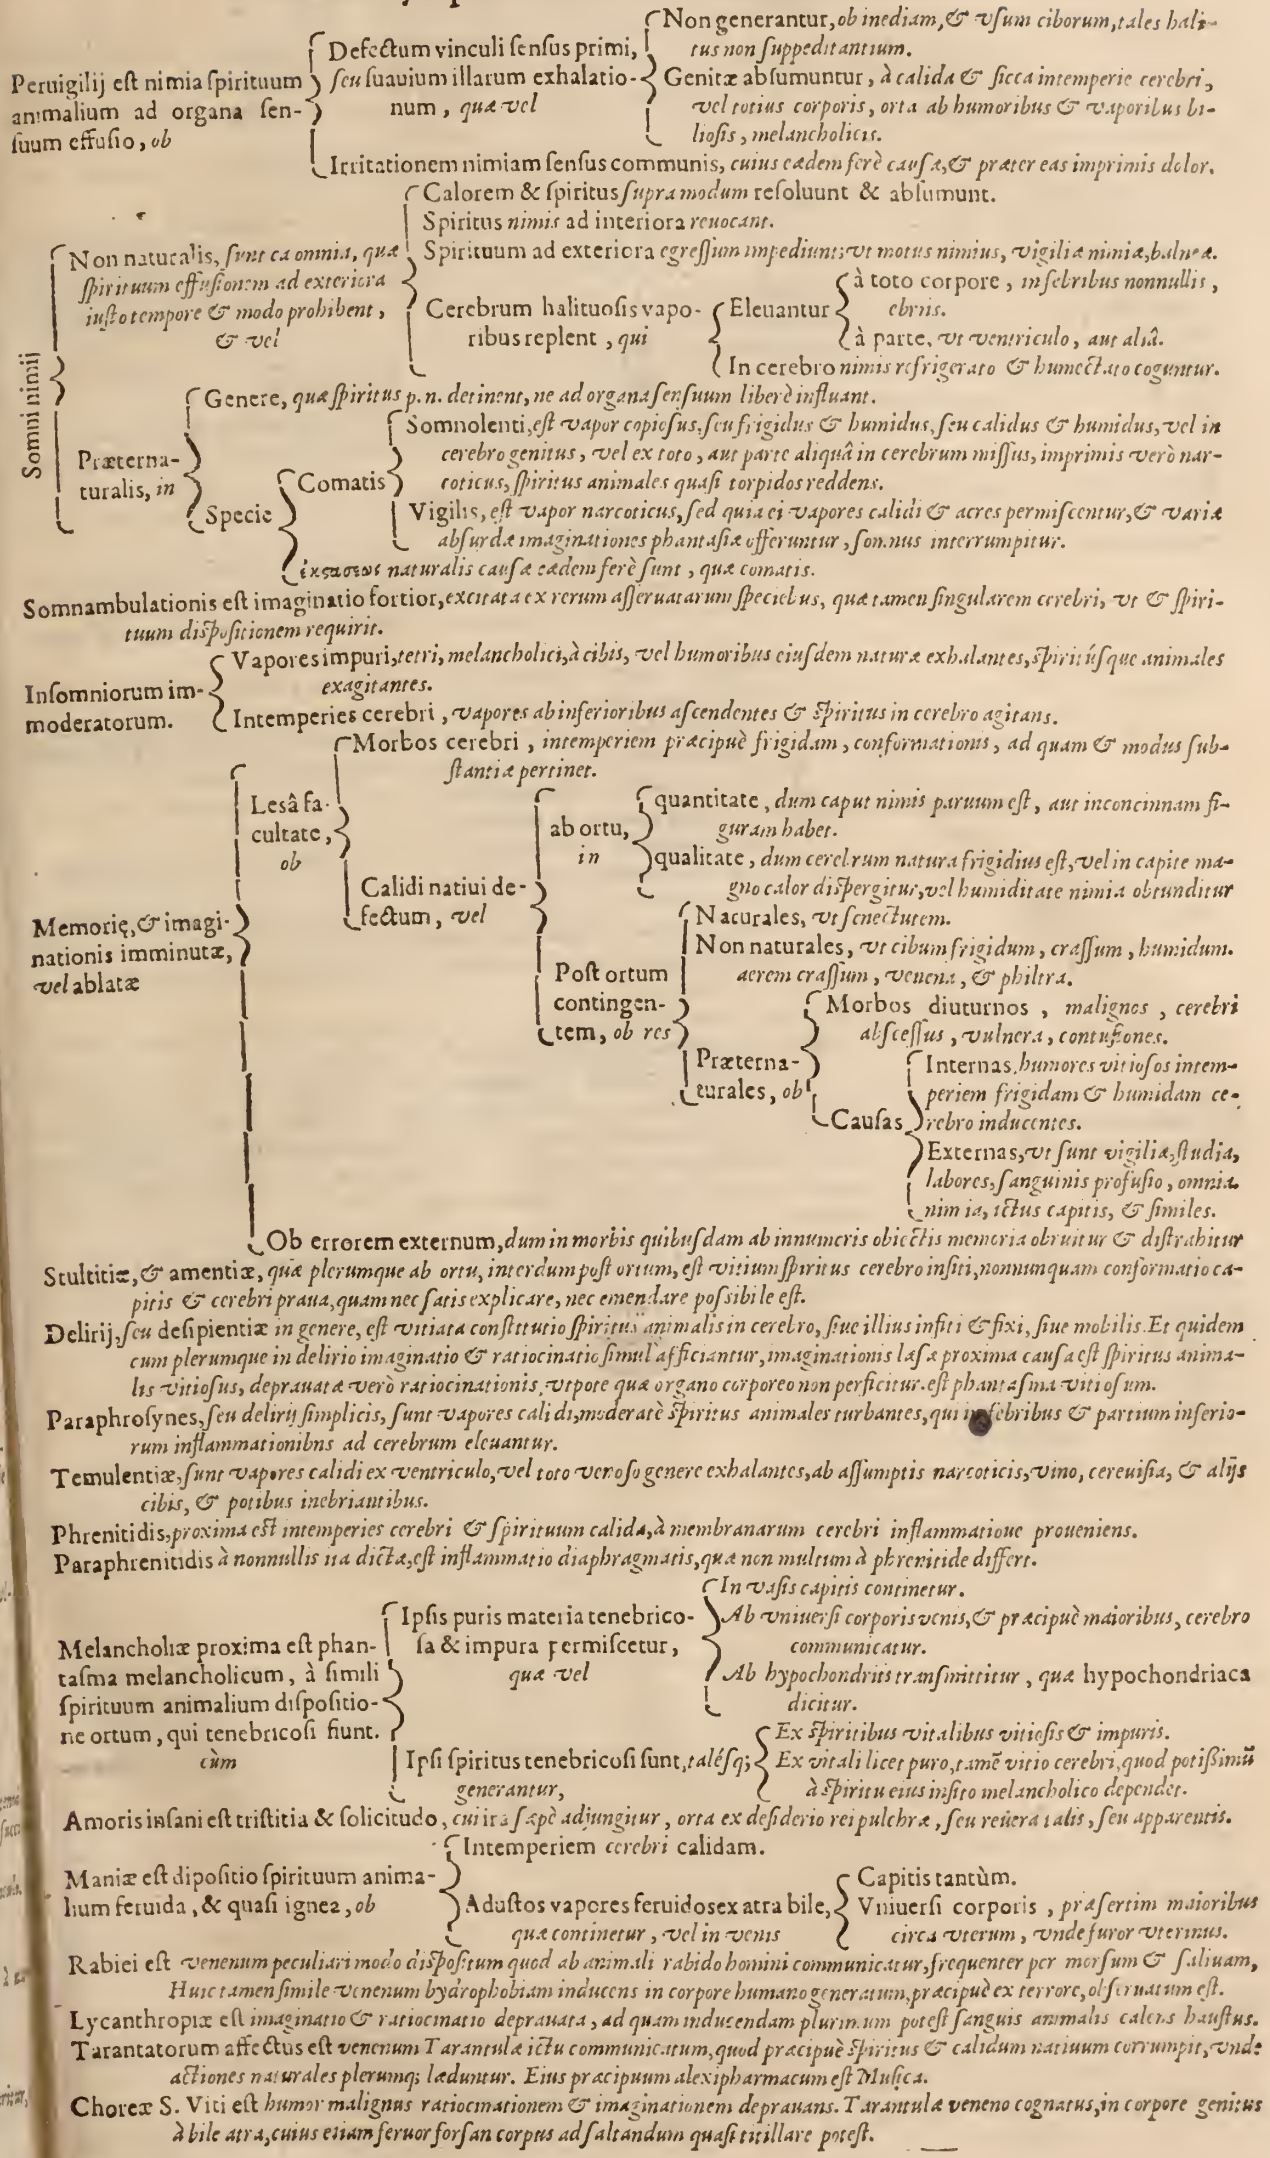 Peruigilij est nimia spirituum
animalium ad organa sen-
suum effusio, ob
Defectum vinculi sensus primi,
seu suauium illarum exhalatio-
num, quæ vel
Non generantur, ob inediam, & vsum ciborum, tales hali-
tus non suppeditantium.
Genitæ absumuntur, à calida & sicca intemperie cerebri,
vel totius corporis, orta ab humoribus & vaporibus bi-
liosis, melancholicis.
Irritationem nimiam sensus communis, cuius eædem ferè causæ, & præter eas imprimis dolor.
Somni nimij
Non naturalis, sunt ea omnia, quæ
spirituum effusionem ad exteriora
iusto tempore & modo prohibent,
& vel
Calorem & spiritus supra modum resoluunt & absumunt.
Spiritus nimis ad interiora reuocant.
Spirituum ad exteriora egressum impediunt: vt motus nimius, vigiliæ nimiæ, balnea.
Cerebrum halituosis vapo-
ribus replent, qui
Eleuantur
à toto corpore, in febribus nonnullis,
ebriis.
à parte, vt ventriculo, aut aliâ.
In cerebro nimis refrigerato & humectato coguntur.
Præterna-
turalis, in
Genere, quæ spiritus p. n. detinent, ne ad organa sensuum liberè influant.
Specie
Comatis
Somnolenti, est vapor copiosus, seu frigidus & humidus, seu calidus & humidus, vel in
cerebro genitus, vel ex toto, aut parte aliquâ in cerebrum missus, imprimis verò nar-
coticus, spiritus animales quasi torpidos reddens.
Vigilis, est vapor narcoticus, sed quia ei vapores calidi & acres permiscentur, & variæ
absurdæ imaginationes phantasiæ offeruntur, somnus interrumpitur.
naturalis causæ eædem ferè sunt, quæ comatis.
Somnambulationis est imaginatio fortior, excitata ex rerum asseruatarum speciebus, quæ tamen singularem cerebri, vt & spiri-
tuum dispositionem requirit.
Insomniorum im-
moderatorum.
Vapores impuri, tetri, melancholici, à cibis, vel humoribus eiusdem naturæ exhalantes, spiritúsque animales
exagitantes.
Intemperies cerebri, vapores ab inferioribus ascendentes & spiritus in cerebro agitans.
Memorię, & imagi-
nationis imminutæ,
vel ablatæ
Lesâ fa-
cultate,
ob
Morbos cerebri, intemperiem præcipuè frigidam, conformationis, ad quam & modus sub-
stantiæ pertinet.
Calidi natiui de-
fectum, vel
ab ortu,
in
quantitate, dum caput nimis paruum est, aut inconcinnam fi-
guram habet.
qualitate, dum cerebrum natura frigidius est, vel in capite ma-
gno calor dispergitur, vel humiditate nimia obtunditur
Post ortum
contingen-
tem, ob res
Naturales, vt senectutem.
Non naturales, vt cibum frigidum, crassum, humidum.
aerem crassum, venena, & philtra.
Præterna-
turales, ob
Morbos diuturnos, malignos, cerebri
abscessus, vulnera, contusiones.
Causas
Internas, humores vitiosos intem-
periem frigidam & humidam ce-
rebro inducentes.
Externas, vt sunt vigiliæ, studia,
labores, sanguinis profusio, omnia
nimia, ictus capitis, & similes.
Ob errorem externum, dum in morbis quibusdam ab innumeris obiectis memoria obruitur & distrahitur
Stultitiæ, & amentiæ, quæ plerumque ab ortu, interdum post ortum, est vitium spiritus cerebro insiti, nonnunquam conformatio ca-
pitis & cerebri praua, quam nec satis explicare, nec emendare possibile est.
Delirij, seu desipientiæ in genere, est vitiata constitutio spiritus animalis in cerebro, siue illius insiti & fixi, siue mobilis. Et quidem
cum plerumque in delirio imaginatio & ratiocinatio simul afficiantur, imaginationis læsæ proxima causa est spiritus anima-
lis vitiosus, deprauatæ verò ratiocinationis, vtpote quæ organo corporeo non perficitur, est phantasma vitiosum.
Paraphrosynes, seu delirij simplicis, sunt vapores calidi, moderatè spiritus animales turbantes, qui in febribus & partium inferio-
rum inflammationibns ad cerebrum eleuantur.
Temulentiæ, sunt vapores calidi ex ventriculo, vel toto venoso genere exhalantes, ab assumptis narcoticis, vino, cereuisia, & alijs
cibis, & potibus inebriantibus.
Phrenitidis, proxima est intemperies cerebri & spirituum calida, à membranarum cerebri inflammatione proueniens.
Paraphrenitidis à nonnullis ita dictæ, est inflammatio diaphragmatis, quæ non multum à phrenitide differt.
Melancholiæ proxima est phan-
tasma melancholicum, à simili
spirituum animalium dispositio-
ne ortum, qui tenebricosi fiunt.
cùm
Ipsis puris materia tenebrico-
sa & impura permiscetur,
quæ vel
In vasis capitis continetur.
Ab vniuersi corporis venis, & præcipuè maioribus, cerebro
communicatur.
Ab hypochondriis transmittitur, quæ hypochondriaca
dicitur.
Ipsi spiritus tenebricosi sunt, talésq;
generantur,
Ex spiritibus vitalibus vitiosis & impuris.
Ex vitali licet puro, tamẽ vitio cerebri, quod potissimũ
à spiritu eius insito melancholico dependet.
Amoris insani est tristitia & solicitudo, cui ira sæpè adjungitur, orta ex desiderio rei pulchræ, seu reuera talis, seu apparentis.
Maniæ est dipositio spirituum anima-
lium feruida, & quasi ignea, ob
Intemperiem cerebri calidam.
Adustos vapores feruidos ex atra bile,
quæ continetur, vel in venis
Capitis tantùm.
Vniuersi corporis, præsertim maioribus
circa vterum, vnde furor vterinus.
Rabiei est venenum peculiari modo dispositum quod ab animali rabido homini communicatur, frequenter per morsum & saliuam,
Huic tamen simile venenum hydrophobiam inducens in corpore humano generatum, præcipuè ex terrore, obseruatum est.
Lycanthropiæ est imaginatio & ratiocinatio deprauata, ad quam inducendam plurimum potest sanguis animalis calens haustus.
Tarantatorum affectus est venenum Tarantulæ ictu communicatum, quod præcipuè spiritus & calidum natiuum corrumpit, vnde
actiones naturales plerumq; læduntur. Eius præcipuum alexipharmacum est Musica.
Choreæ S. Viti est humor malignus ratiocinationem & imaginationem deprauans. Tarantulæ veneno cognatus, in corpore genitus
à bile atra, cuius etiam feruor forsan corpus ad saltandum quasi titillare potest.